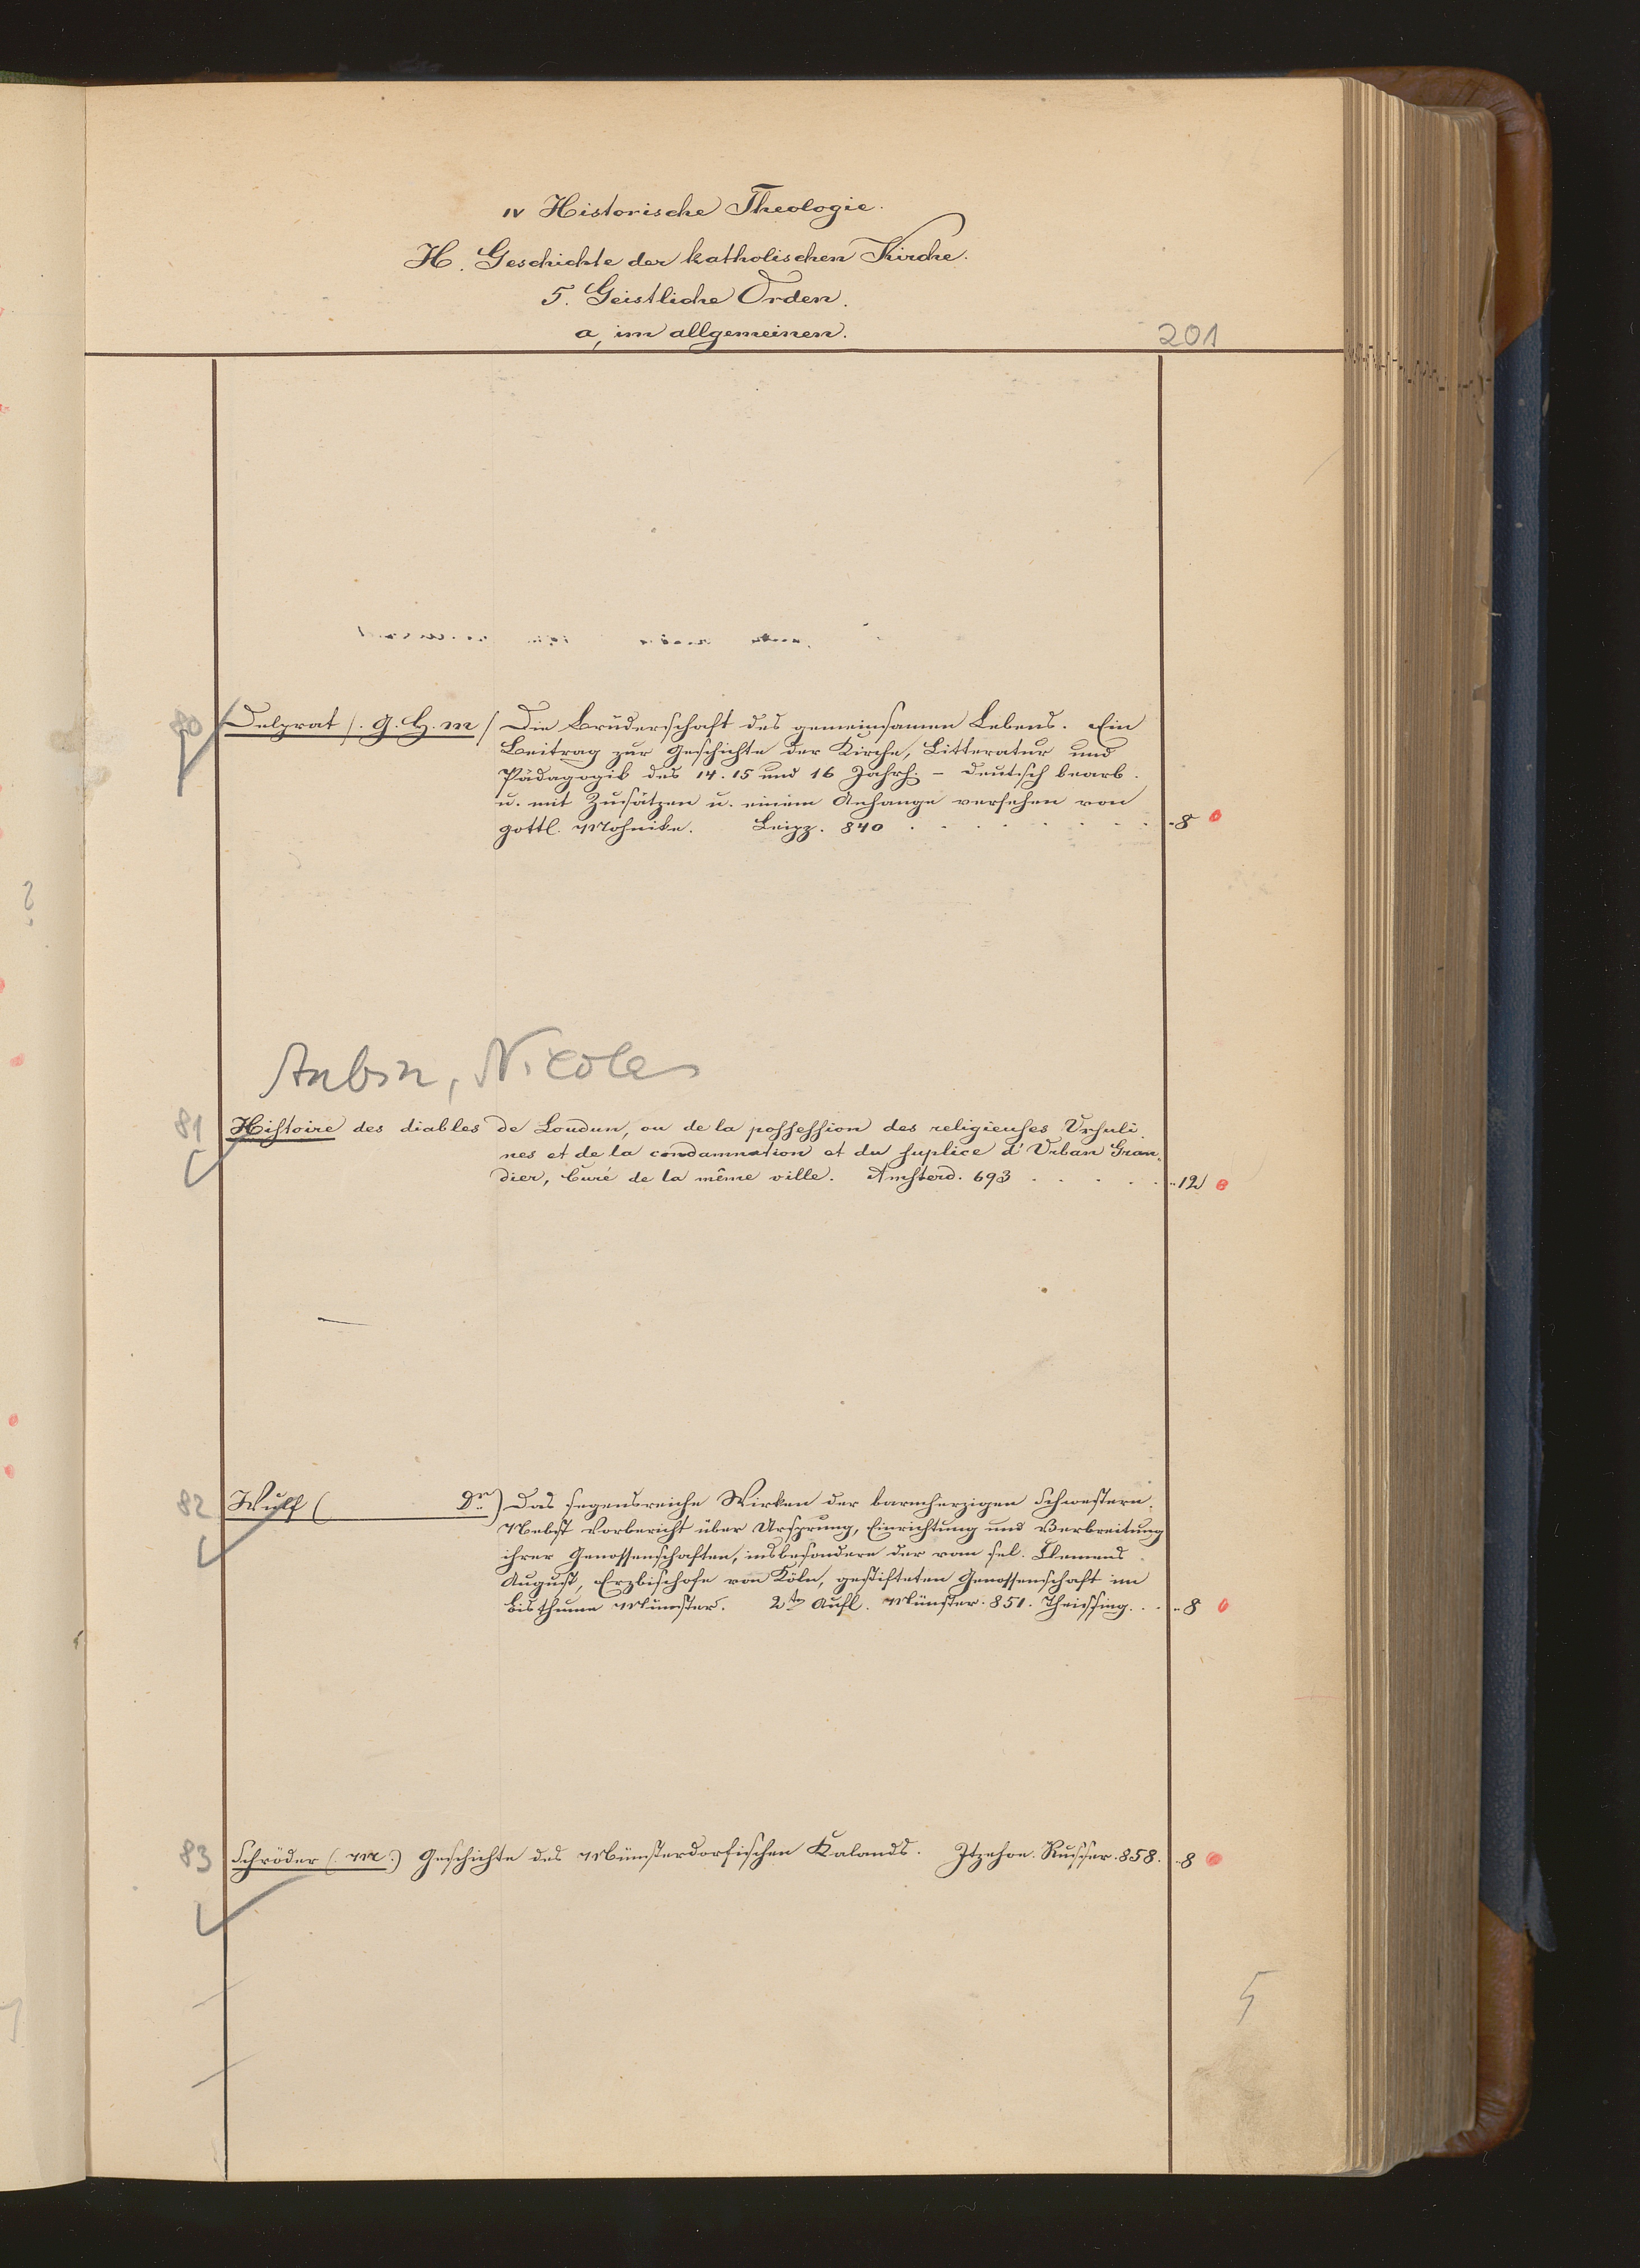 IV Historische Theologie.
H. Geschichte der katholischen Kirche.
5. Geistliche Orden.
a, im allgemeinen.
201
80 Delprat /. G. H. M / Die Bruderschaft des gemeinsamen Lebens. Ein
Beitrag zur Geschichte der Kirche, Litteratur und
Pädagogik des 14. 15 und 16 Jahrh. – Deutsch bearb.
u. mit Zusätzen u. einem Anhange versehen von
Gottl. Mohnike. Leipz. 840 . . . . . . . . 8
Aubin, Nicolas
81 Histoire des diables de Loudun, ou de la possession des religieuses Ursuli
nes et de la condamnation et du suplice d'Urban Gran-
dier, Curé de la même ville. Amsterd. 693 . . . . . 12
82 Wulf ( Dr.) Das segensreiche Wirken der barmherzigen Schwestern.
Nebst Vorbericht über Ursprung, Einrichtung und Verbreitung
ihrer Genossenschaften, insbesondere der vom sel. Clemens
August, Erzbischofe von Köln, gestifteten Genossenschaft im
Bisthume Münster. 2te Aufl. Münster. 851. Theissing. . . . 8
83 Schröder (. M.) Geschichte des Münsterdorfischen Kalands. Itzehoe. Nusser. 858. . 8
5